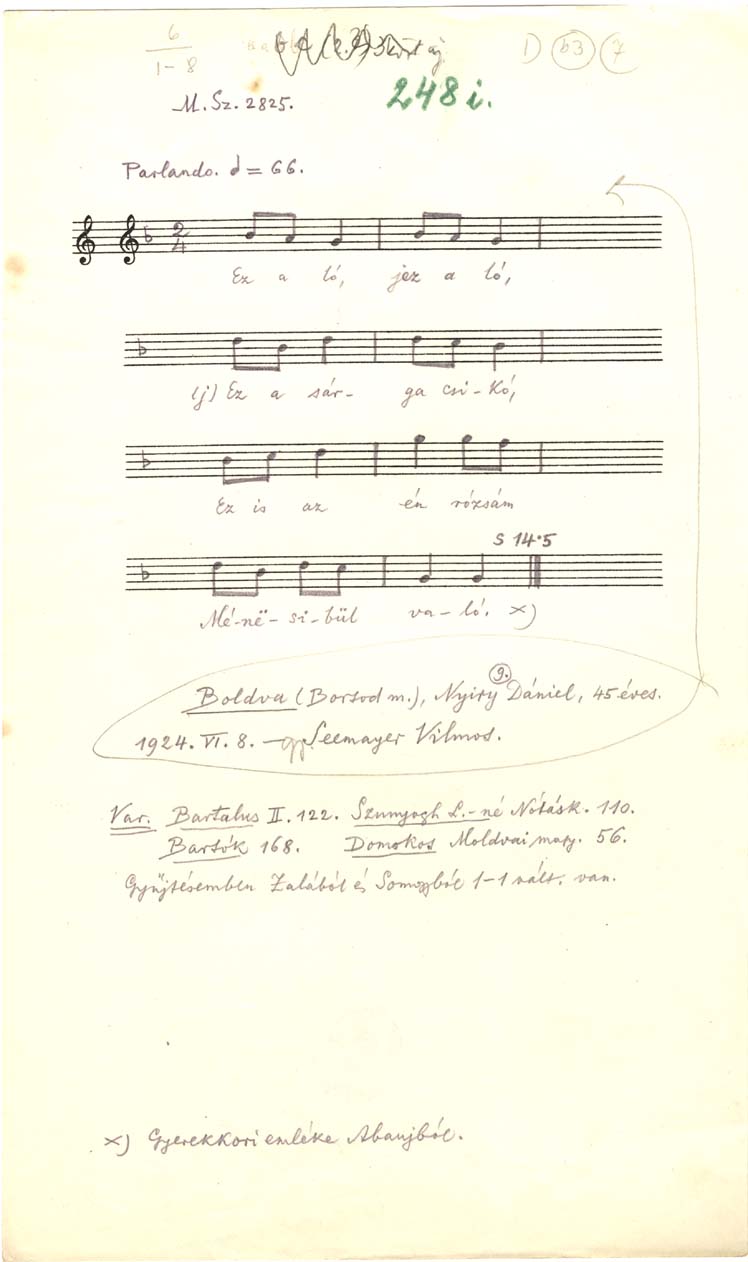 6
1-8
1) b3 7
M. Sz. 2825.
248 i.
Parlando. = 66.
2
4
Ez a ló, jez a ló,
(j) Ez a sár- ga csi-kó,
Ez is az én rózsám
S 14.5
Mé-në-si-bül va-ló. x)
9.
Boldva (Borsod m.), Nyiry Dániel, 45 éves.
1924. VI. 8. — Seemayer Vilmos.
Var. Bartalus II. 122. Szunyogh L.-né Nótásk. 110.
Bartók 168. Domokos Moldvai magy. 56.
Gyűjtésemben Zalából és Somogyból 1-1 vált. van.
x) Gyerekkori emléke Abaujból.